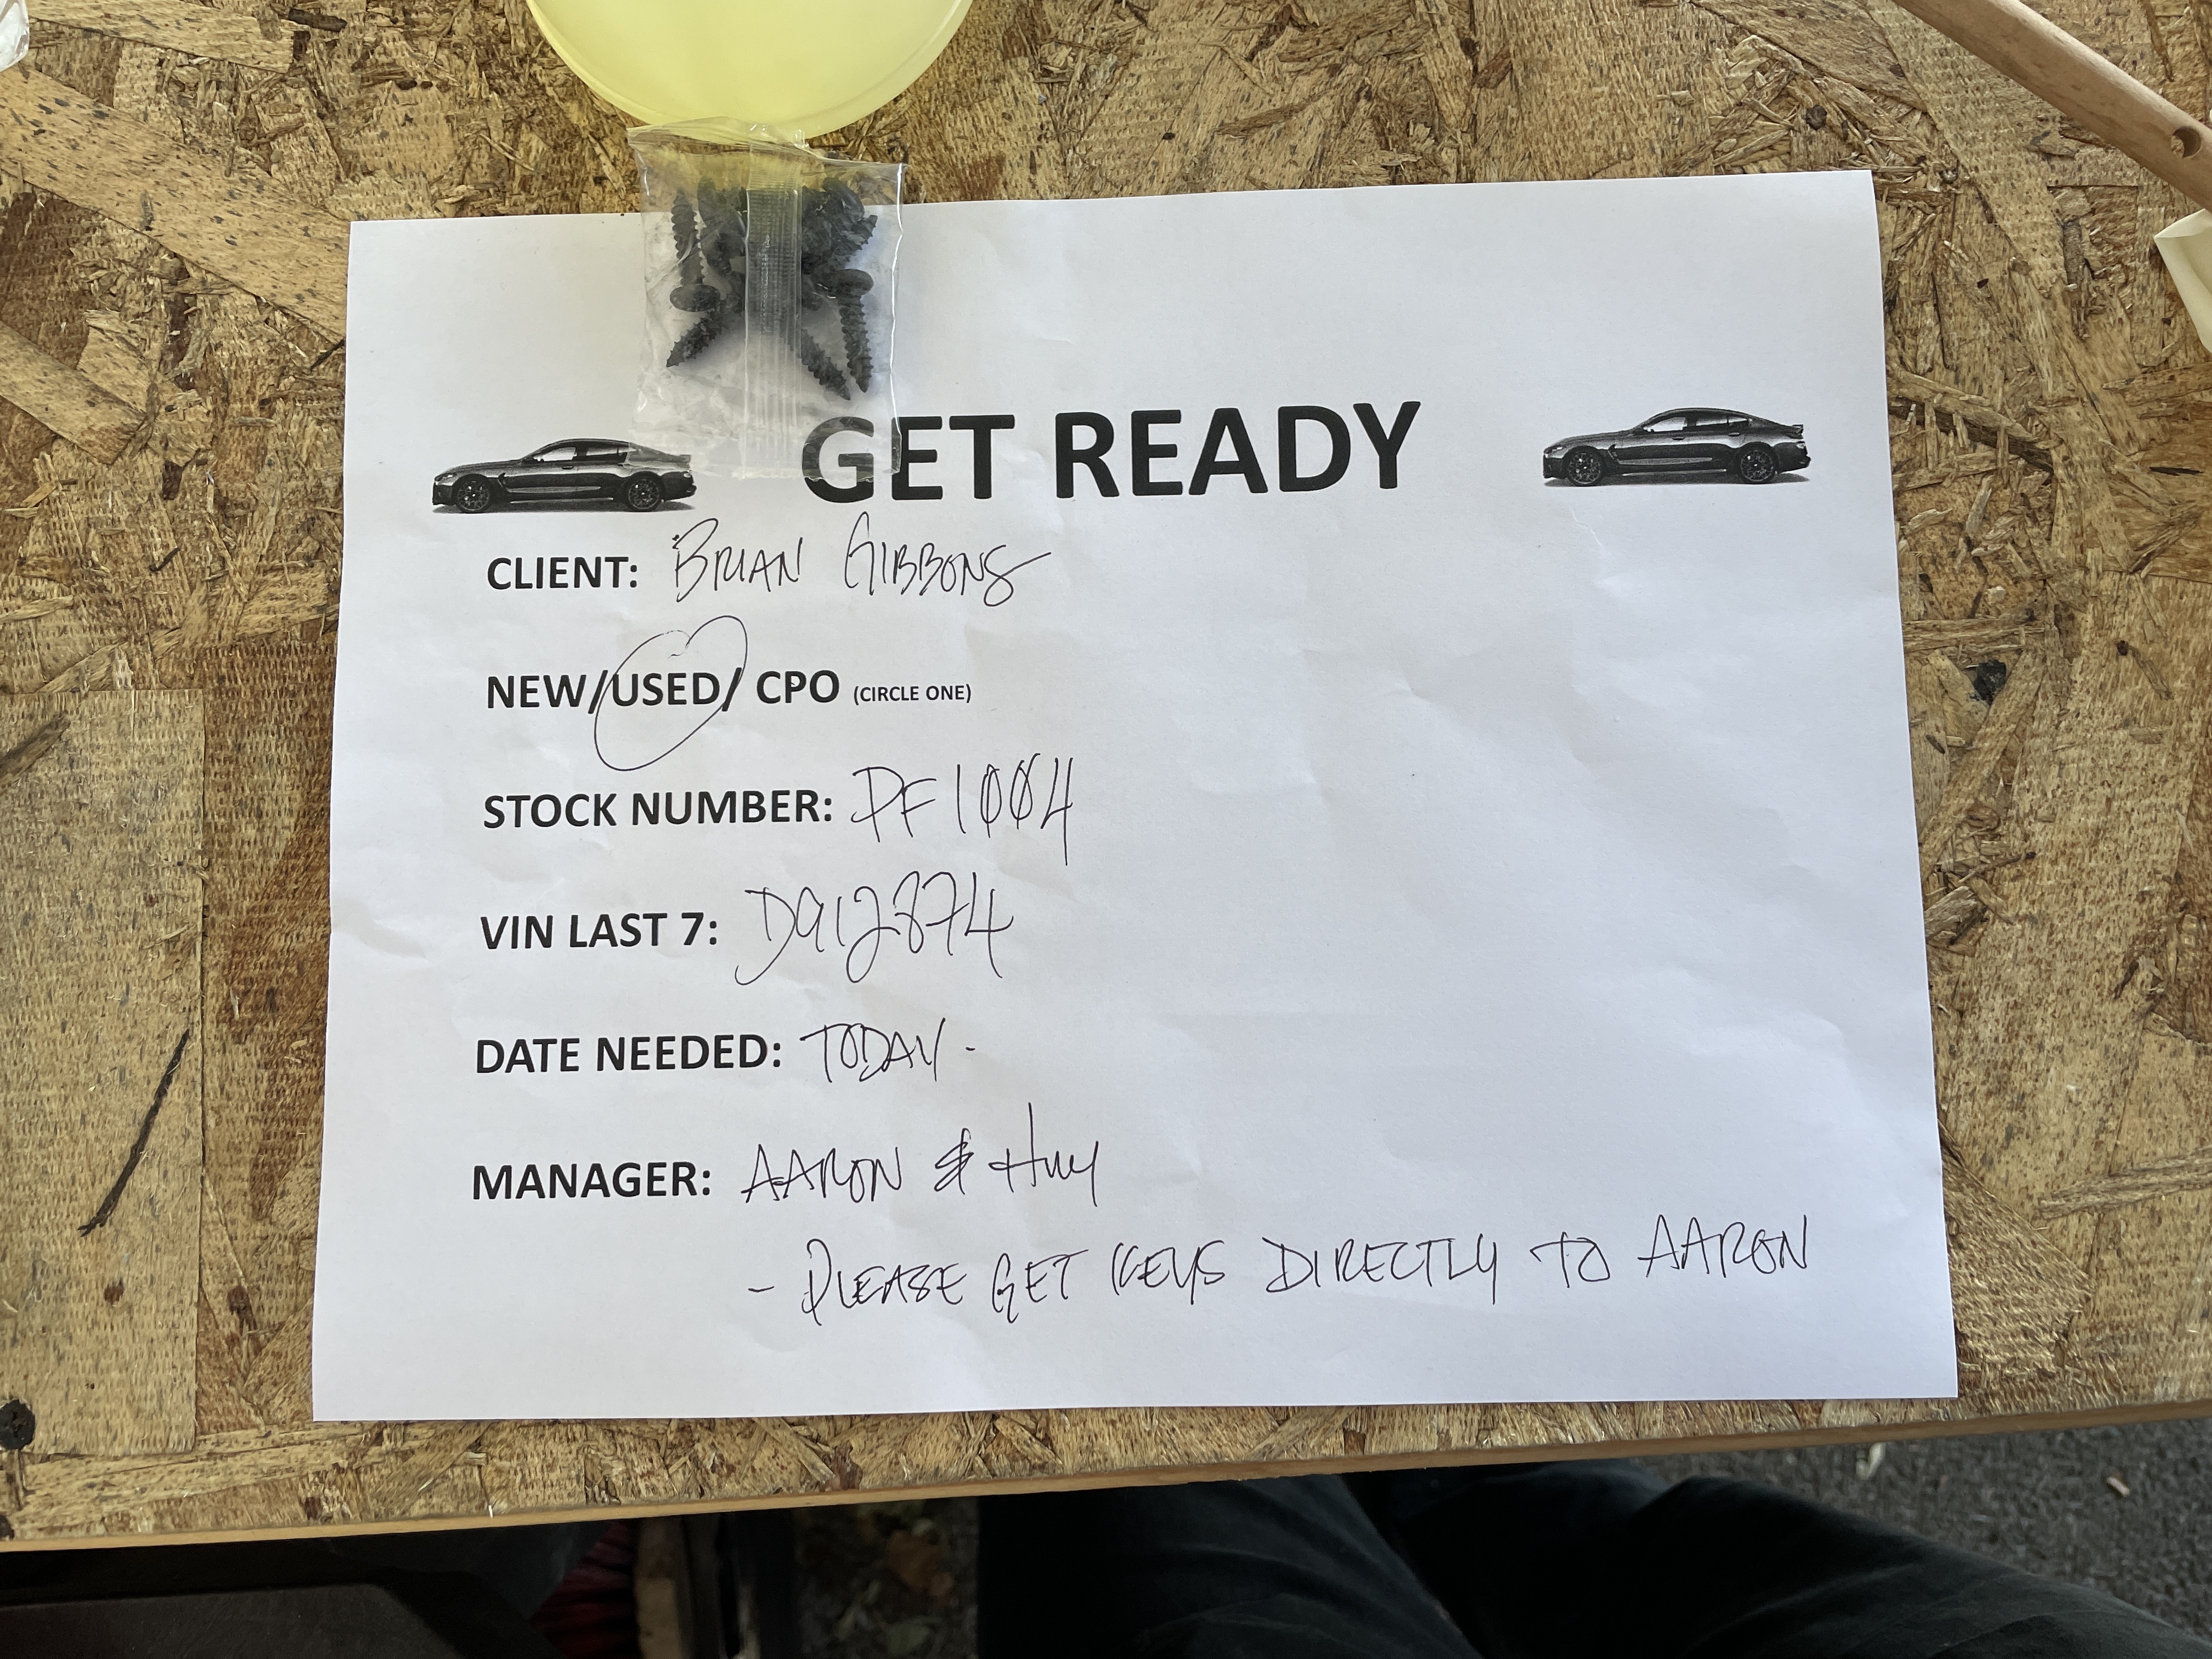 GET READY
CLIENT: BRIAN GIBBONS
NEW/USED/ CPO (CIRCLE ONE)
STOCK NUMBER: PF1004
VIN LAST 7: D912874
DATE NEEDED: TODAY -
MANAGER: AARON & Huy
- PLEASE GET KEYS DIRECTLY TO AARON